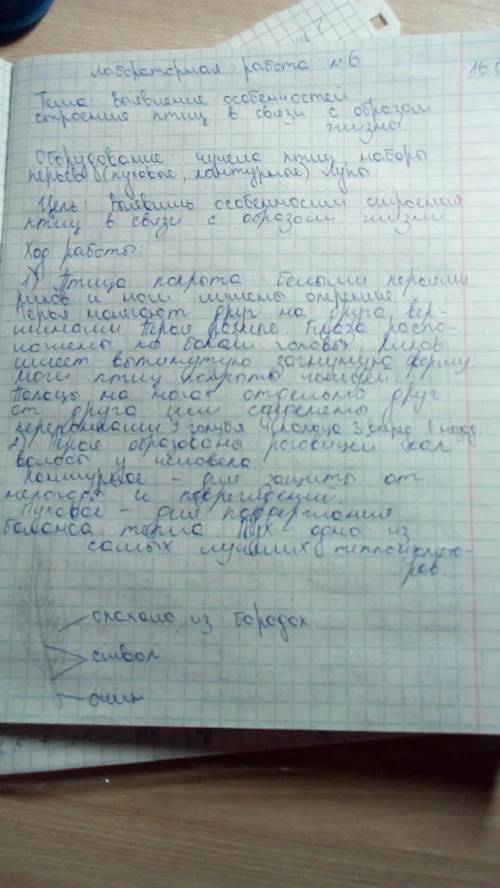 Лабораторная работа №6
16.0
Тема: Выявление особенностей
строения птиц в связи с образом
жизни
Оборудование: чучела птиц, наборы
перьев (пуховые, контурные) лупы.
Цель: Выявить особенности строения
птиц в связи с образом жизни
Ход работы:
1) Птица покрыта белыми перьями
клюв и ноги лишены оперение
Перья налегают друг на друга вер-
шинами Перья разные. Глаза распо-
ложены по бокам головы. Клюв
имеет вытянутую загнутую форму
Ноги птиц покрыты чешуёй.
Пальцы на ногах отдельно друг
от друга или соединены
перепонками У голубя 4 пальца 3 вперед 1 назад
2) Перья образованы роговицей как
волосы у человека
Контурное - для защиты от
непогоды и повреждений.
Пуховое - для поддержания
баланса тепла Пух - одно из
самых лучших теплоизолято-
ров
опахало из бородок
ствол
очин